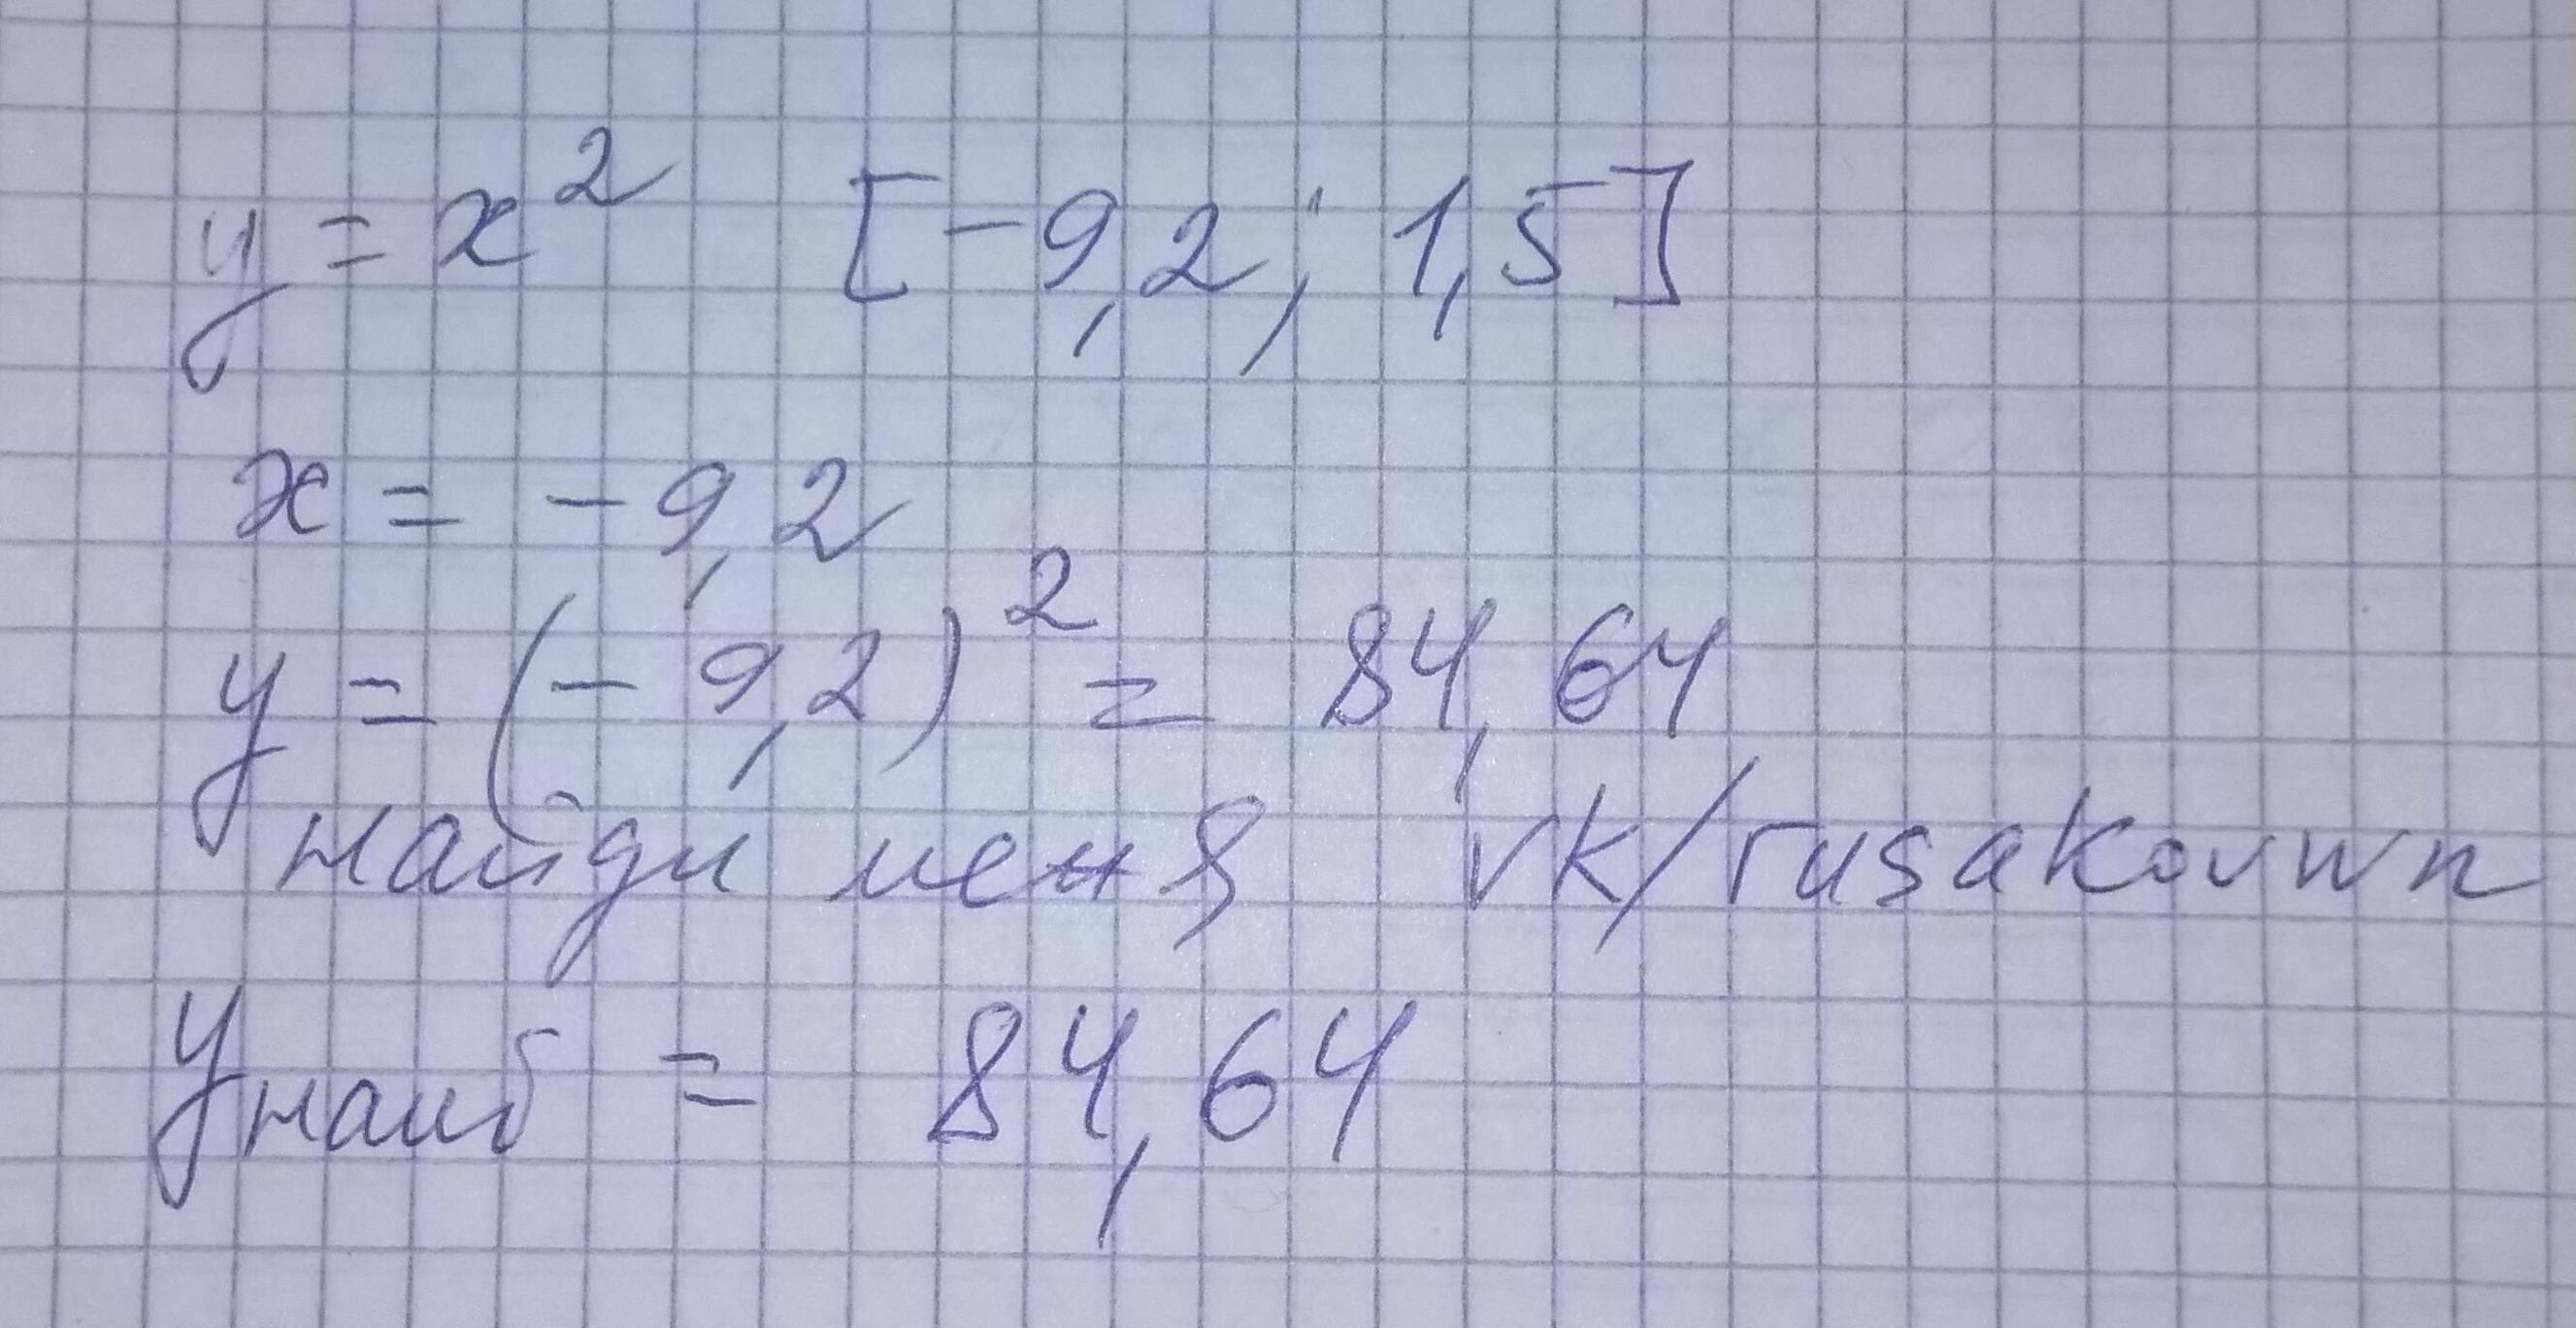 y = x² [-9,2; 1,5]
x = -9,2
y = (-9,2)² = 84,64
найди меня vk/rusakovwn
yнаиб = 84,64